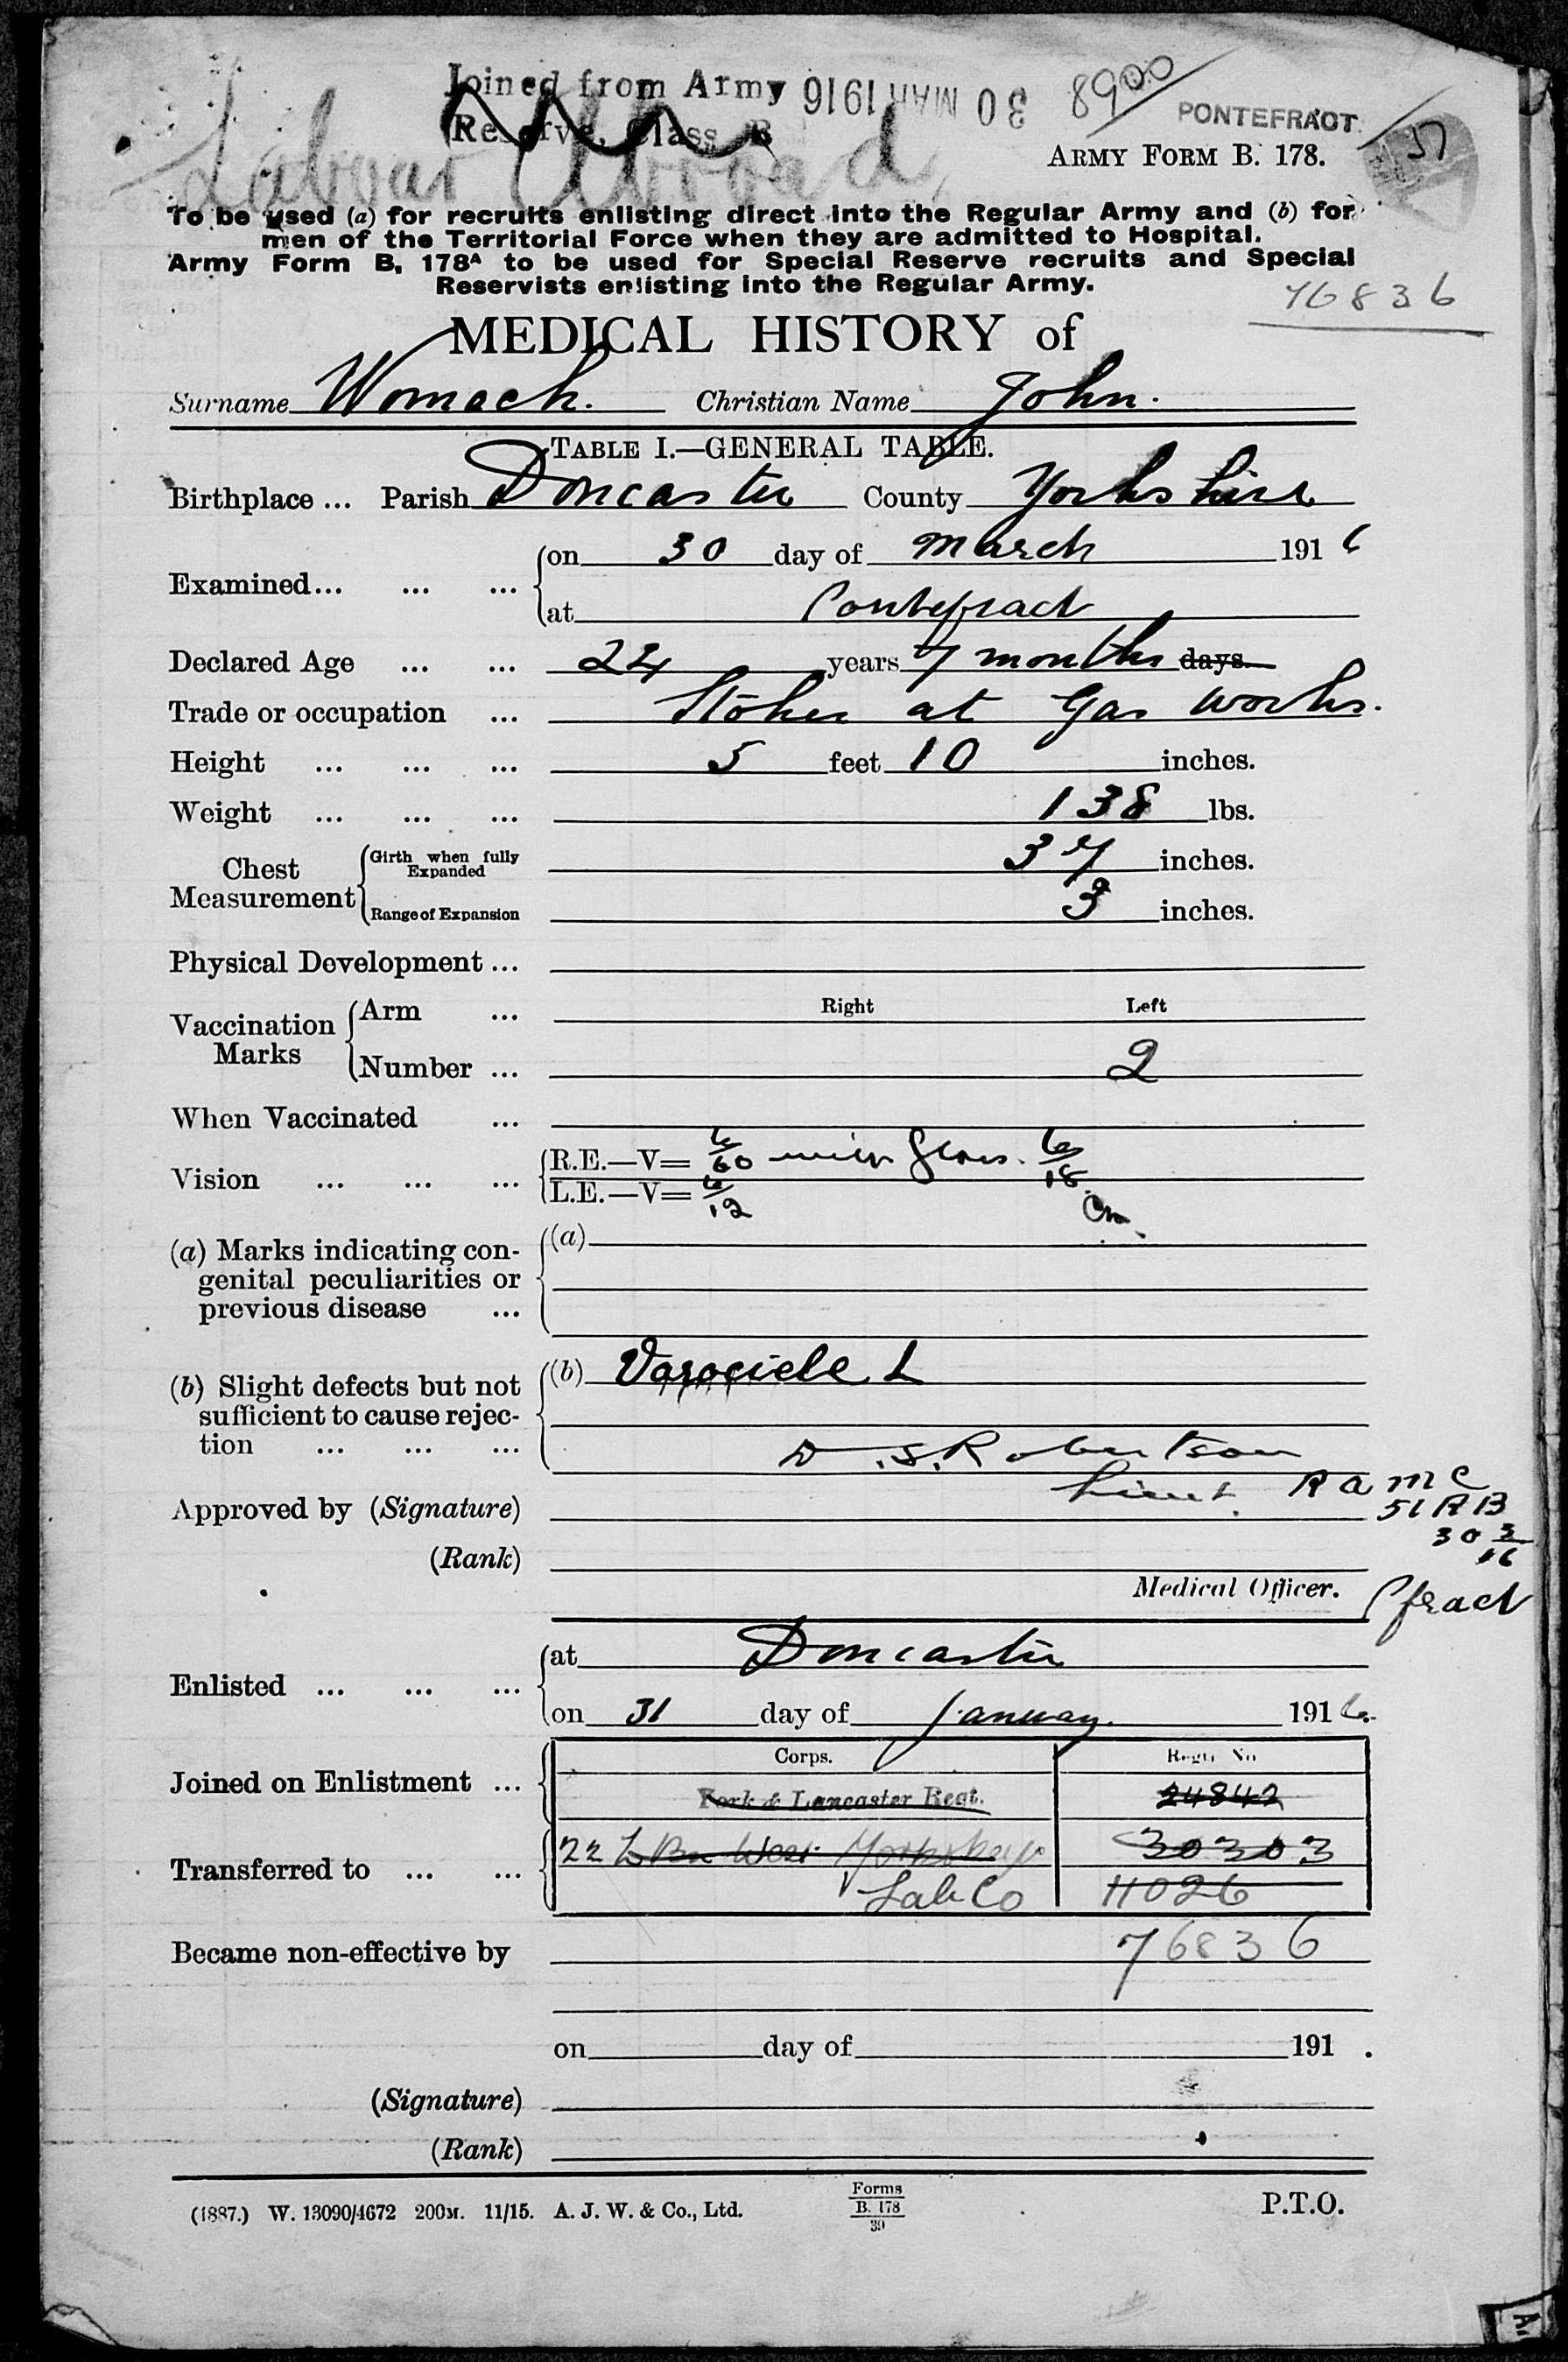 Joined from Army 30 MAR 1916 8900
Reserve, Class B PONTEFRACT 37
Labour Abroad
ARMY FORM B. 178.
To be used (a) for recruits enlisting direct into the Regular Army and (b) for
men of the Territorial Force when they are admitted to Hospital.
Army Form B. 178A to be used for Special Reserve recruits and Special
Reservists enlisting into the Regular Army.
76836
MEDICAL HISTORY of
Surname Womack. Christian Name John.
TABLE I.—GENERAL TABLE.
Birthplace ... Parish Doncaster County Yorkshire
Examined... ... ... on 30 day of March 1916
at Pontefract
Declared Age ... ... 24 years 7 months days.
Trade or occupation ... Stoker at Gas Works.
Height ... ... ... 5 feet 10 inches.
Weight ... ... ... 138 lbs.
Chest Measurement Girth when fully Expanded 37 inches.
Range of Expansion 3 inches.
Physical Development ...
Vaccination Marks Arm ... Right Left
Number ... 2
When Vaccinated ...
Vision ... ... ... R.E.—V= 6/60 with glass. 6/18
L.E.—V= 6/12
(a) Marks indicating con- (a)
genital peculiarities or
previous disease ...
(b) Slight defects but not (b) Varocicle L
sufficient to cause rejec-
tion ... ... ...
D.S. Robertson
Lieut. RAMC
Approved by (Signature) 51 RB
(Rank) 30 3/16
Medical Officer. Pfract
Enlisted ... ... ... at Doncaster
on 31 day of January 1916.
Corps. Regtl. No.
Joined on Enlistment ... York & Lancaster Regt. 24842
Transferred to ... ... 22 L Bn West Yorks 30303
Lab Co 11026
Became non-effective by 76836
on day of 191 .
(Signature)
(Rank)
(1887.) W. 13090/4672 200M. 11/15. A. J. W. & Co., Ltd. Forms B. 178 39 P.T.O.